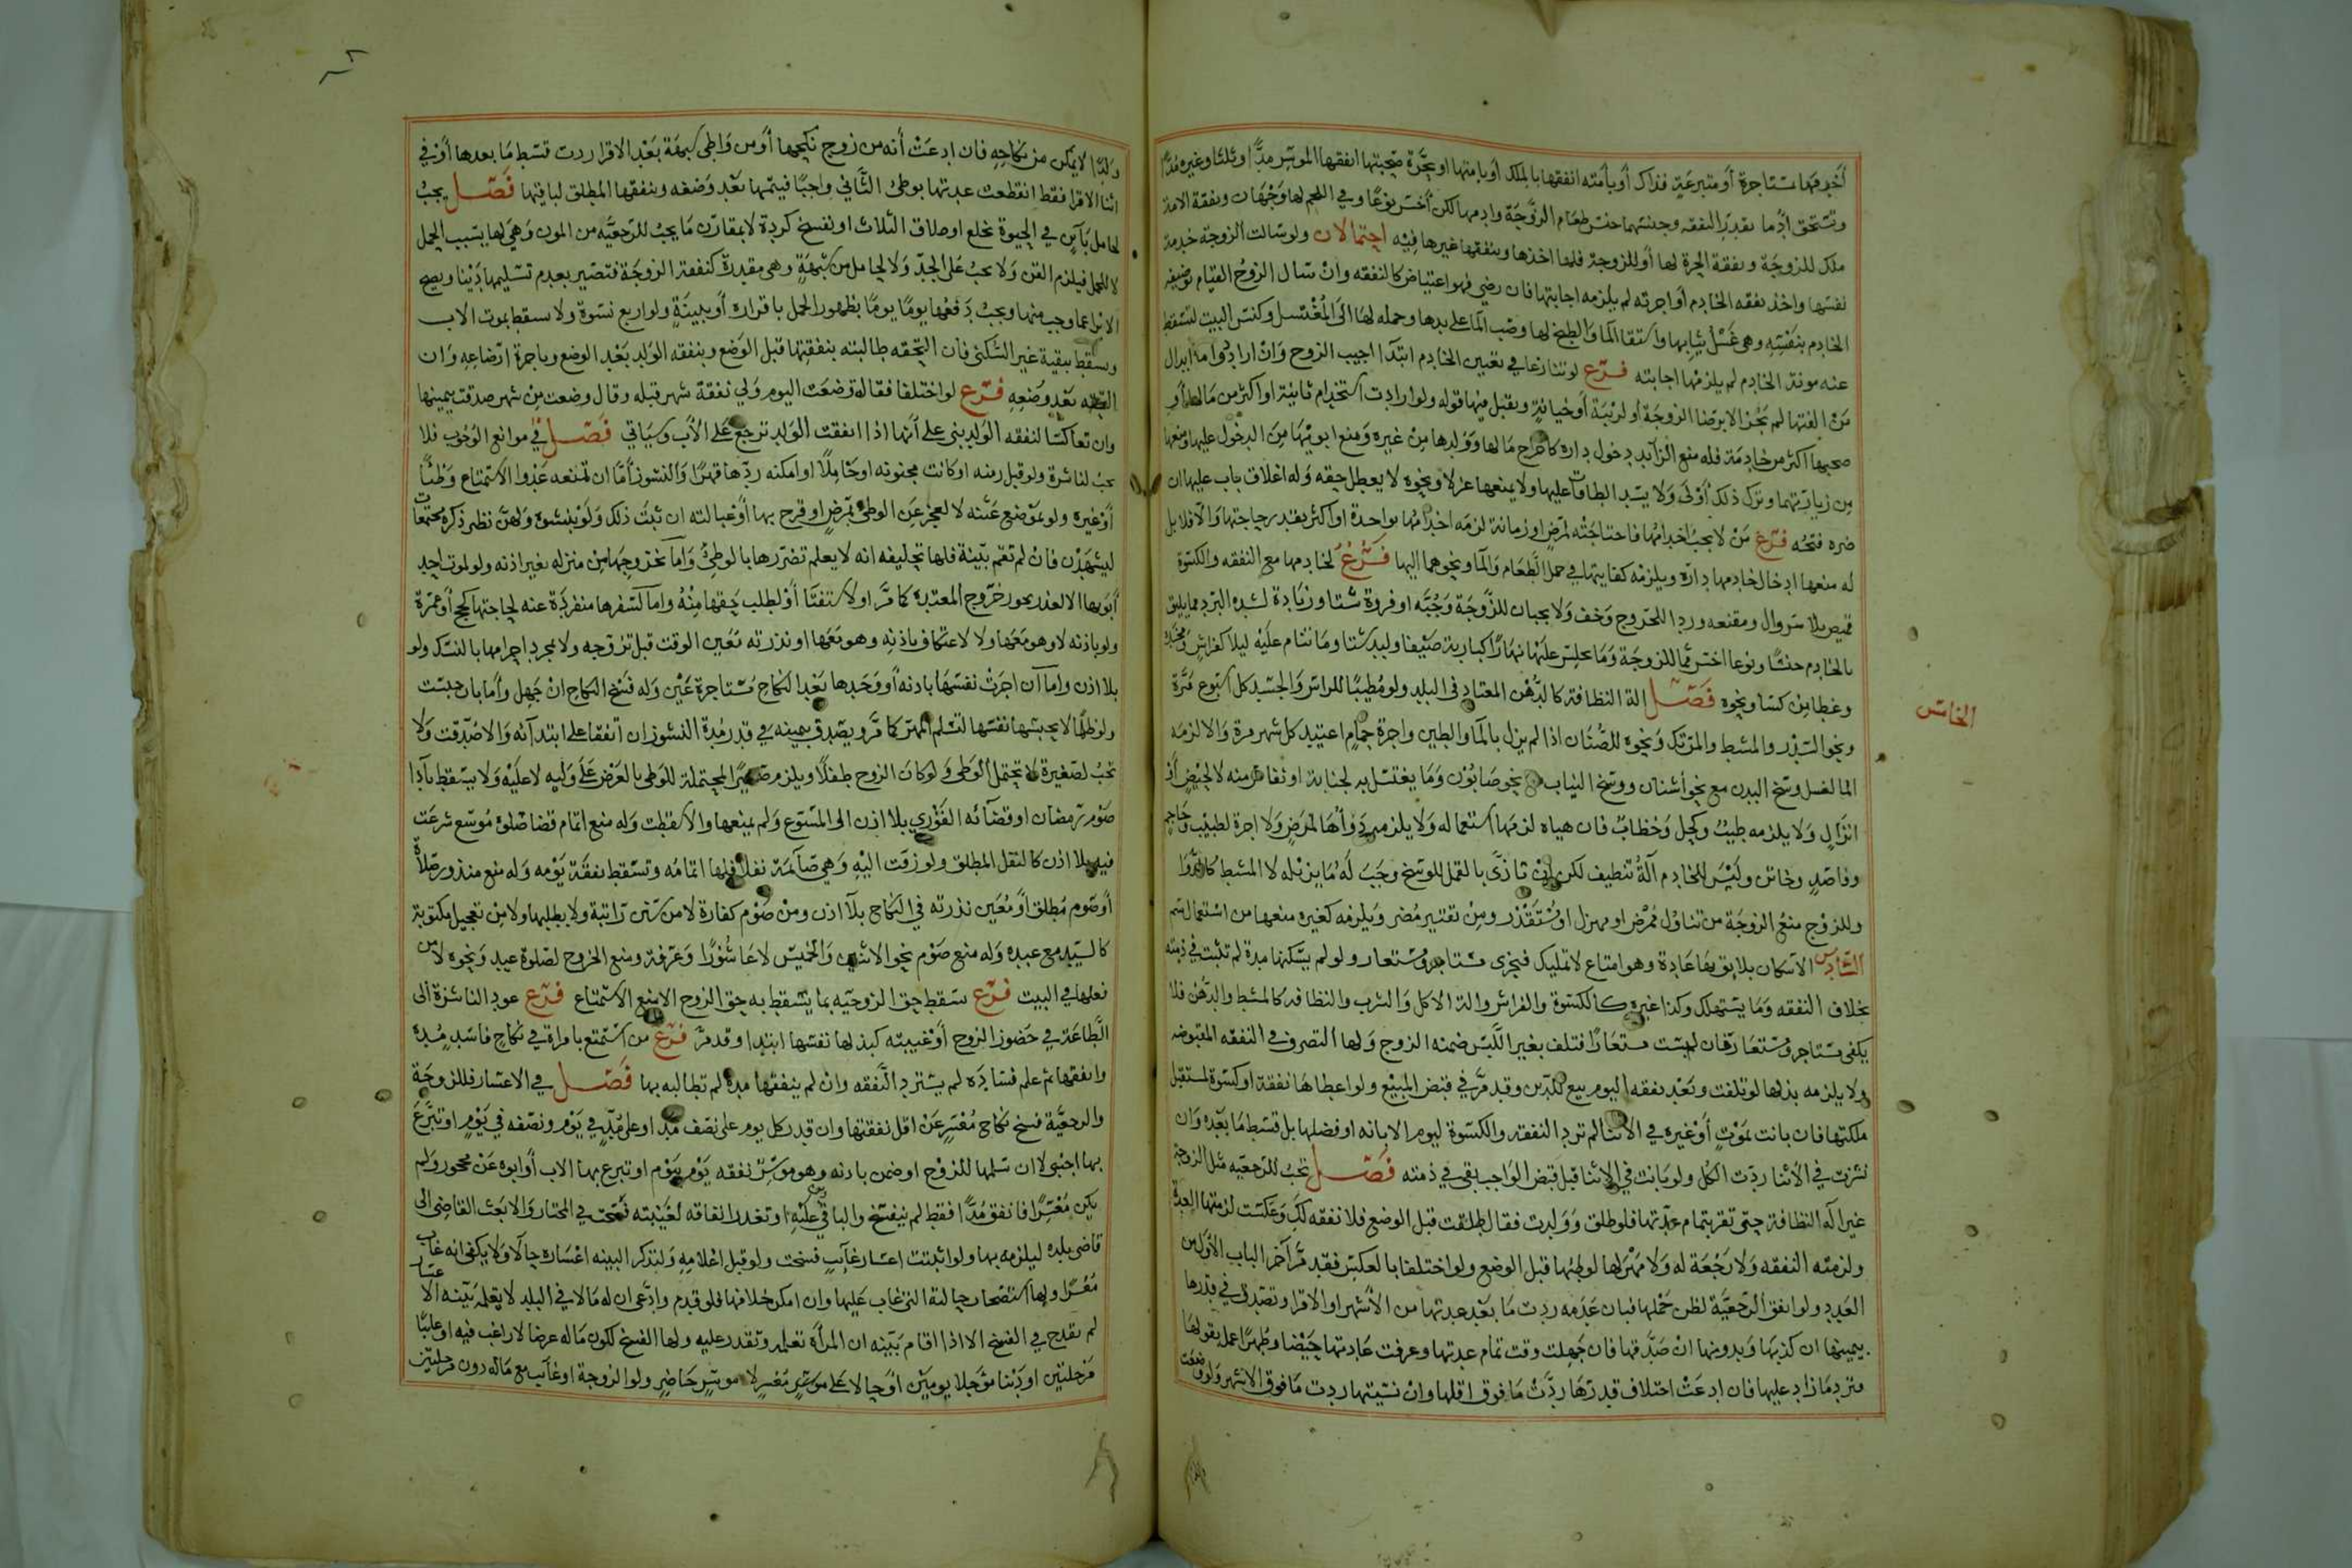 أخدمها مستاجرة أو متبرعة فذاك أو بأمته انفقها بالملك أو بامتها او بحرة صحبتها انفقها الموسر مدًّا وثلثا وغيره مُدًّا
وتستحق ادما بقدر النفقه وجنسهما جنس طعام الزوجة وادمها لكن أخس نوعًا وفي اللحم لها وجهان ونفقة الامة
ملك للزوجة ونفقة الحرة لها أو للزوجة فلها اخذها وينفقها غيرها فيه احتمالان ولو سالت الزوجة خدمة
نفسها واخذ نفقه الخادم أو اجرته لم يلزمه اجابتها فان رضي فهو اعتياض كالنفقه وان سال الزوج القيام بوضيفه
الخادم بنفسه وهي غسل ثيابها واستقا الما والطبخ لها وصب الما على يدها وحمله لها الى المغتسل وكنس البيت لتسقط
عنه مونة الخادم لم يلزمها اجابته فرع لو تنازعا في تعيين الخادم ابتدآ اجيب الزوج وان ارادوا ابدال
من الفتها لم يجز الا برضا الزوجة أو لريبة أو خيانة ويقبل فيها قوله ولو ارادت استخدام ثانية او اكثر من مالها أو
صحبها اكثر من خادمة فله منع الزآيد دخول داره كاخراج مالها وولدها من غيره ومنع ابويها من الدخول عليها ومنعها
من زيارتهما وترك ذلك أولى ولا يسد الطاقات عليها ولا يمنعها عزلا ونحوه لا يعطل حقه وله اغلاق باب عليها ان
ضره فتحه فرع من لا يجب اخدامها فاحتاجته لمرض او زمانة لزمه اخدامها بواحدة او اكثر بقدر حاجتها والا فلا بل
له منعها ادخال خادمها داره ويلزمه كفايتها في حمل الطعام والما ونحوهما اليها فرع لخادمها مع النفقه والكسوة
قميص بلا سروال ومقنعه وردا للخروج وخف ولا يجبان للزوجة وجُبّه او فروة شتا وزيادة لشده البرد مما يليق
بالخادم جنسًا ونوعا اخس مما للزوجة وما يجلس عليها نهارًا كبارية صيفا ولبد شتا وما تنام عليه ليلا كفراش ومخدة
وغطا من كسا ونحوه فصل الة النظافة كالدهن المعتاد في البلد ولو مُطيبًا للراس والجسد كل اسبوع مرة
الخامس
ونحو السدر والمشط والمرتك ونحوه للصُّنَان اذا لم يزل بالما والطين واجرة حمام اعتيد كل شهر مرة والا لزمه
الما لغسل وسخ البدن مع نحو أشنان ووسخ الثياب نحو صابون وما يغتسل به لجنابة او نفاس منه لا لحيض أو
انزال ولا يلزمه طيب وكحل وخضاب فان هياه لزمها استعماله ولا يلزمه دوآها لمرض ولا اجرة لطبيب وحاجم
وفاصد وخاتن وليس للخادم آلة تنظيف لكن ان تاذى بالقمل للوسخ وجب له ما يزيله لا المشط كالدوا
وللزوج منع الزوجة من تناول ممرض او مهزل او مستقذر ومن تقتير مضر ويلزمه كغيره منعها من استعمال سم
السادس الاسكان بلايق بها عادة وهو امتاع لا تمليك فيجزى مستاجر ومستعار ولو لم يسكنها مدة لم تثبت في ذمته
بخلاف النفقه وما يستهلك وكذا غيره كالكسوة والفراش والة الاكل والشرب والنظافه كالمشط والدهن فلا
يكفى مستاجر ومستعار فان لبست مستعارًا فتلف بغير اللبس ضمنه الزوج ولها التصرف في النفقه المقبوضه
ولا يلزمه بذلها لو تلفت وتعد نفقه اليوم بيع للدين وقد مرّ في قبض المبيع ولو اعطاها نفقة او كسوة لمستقبل
ملكتها فان بانت بموت أو غيره في الاثنا لم ترد النفقة والكسوة ليوم الابانه او فضلها بل قسط ما بعده وان
نشزت في الأثنا ردت الكل ولو بانت في الاثنا قبل قبض الواجب بقى في ذمته فصل تجب للرجعيه مثل الزوجة
غير آله النظافة حتى تقر بتمام عدتها فلو طلق وولدت فقال طلقت قبل الوضع فلا نفقه لك وعكست لزمتها العدة
ولزمته النفقه ولا رجعة له ولا مهر لها لوطئها قبل الوضع ولو اختلفا بالعكس فقد مرّ آخر الباب الأول من
العدد ولو انفق الرجعيّة لظن حملها فبان عدمه ردت ما بعد عدتها من الأشهر او الاقرا وتصدق في قدرها
بيمينها ان كذبها وبدونها ان صدقها فان جهلت وقت تمام عدتها وعرفت عادتها حيضا وطهرًا عمل بقولها
وترد ما زاد عليها فان ادعت اختلاف قدرها ردت ما فوق اقلها وان نسيتها ردت ما فوق الاشهر ولو وضعت
ولدًا لا يمكن من نكاحه فان ادعت أنه من زوج نكحها أو من واطى بشبهة بعد الاقرا ردت قسط ما بعدها أو في
اثنا الاقرا فقط انقطعت عدتها بوطئ الثاني واجبًا فيتمها بعد وضعه وينفقها المطلق لباقيها فصل يجب
لحامل بآين في الحيوة بخلع او طلاق الثلاث او بفسخ كردة لا بمقارن ما يجب للرجعيه من المون وهي لها بسبب الحمل
لا للحمل فيلزم القن ولا يجب على الجدّ ولا لحامل من شبهة وهي مقدرة كنفقة الزوجة فتصير بعدم تسليمها دينا ويصح
الابرا عما وجب منها ويجب دفعها يومًا يومًا بظهور الحمل باقراره أو ببينة ولو اربع نسوة ولا تسقط بموت الاب
وتسقط بيقية غير السكنى فان التحقه طالبته بنفقتها قبل الوضع وبنفقه الولد بعد الوضع وباجرة ارضاعه وان
التحقه بعد وضعه فرع لو اختلفا فقالت وضعت اليوم ولي نفقة شهر قبله وقال وضعت من شهر صدقت بيمينها
وان تعاكسا لنفقه الولد بني على أنها اذا انفقت الولد ترجع على الأب وسياتي فصل في موانع الوجوب فلا
تجب لناشزة ولو قبل زمنه او كانت مجنونه او حاملًا او امكنه ردّها قهرًا والنشوز أمّا ان تمنعه عدوا الاستمتاع وطئًا
أو غيره ولو بموضع عينه لا لعجز عن الوطئ بمرض او قرح بها أو عبالته ان ثبت ذلك ولو بنسوة ولهن نظر ذكره مجتمعات
ليشهدن فان لم تقم بيّنة فلها تحليفه انه لا يعلم تضررها بالوطئ واما بخروجها من منزله بغير اذنه ولو لموت احد
أبويها الا لعذر بجوز خروج المعتدة كما مرّ او لاستفتا أو لطلب حقها منه واما لسفرها منفردة عنه لحاجتها كحج أو عمرة
ولو باذنه لا وهو معها ولا لاعتكاف باذنه وهو معها او نذرته معين الوقت قبل تزوجه ولا بمجرد احرامها بالنسك ولو
بلا اذن واما ان اجرت نفسها باذنه أو وحدها بعد النكاح مستاجرة عين وله فسخ النكاح ان جهل وأما بان حبست
ولو ظلمًا لا بحبسها نفسها لتسلم المهر كما مرّ ويصدق بيمينه في قدر مدة النشوز ان اتفقا على ابتدآئه والا صدقت ولا
تجب لصغيرة لا تحتمل الوطئ ولو كان الزوج طفلًا ويلزم صغيرًا لمحتملة للوطى بالعرض على وليه لا عليه ولا يسقط بآدآ
صوم رمضان او قضآئه الفوري بلا اذن الى المتسوع ولم يمنعها والا سقطت وله منع اتمام قضا صلوة موسع شرعت
فيه بلا اذن كالنفل المطلق ولو زفت اليه وهي صآئمة نفلًا فلها اتمامه وتسقط نفقة يومه وله منع منذور صلاة
أو صوم مُطلق أو مُعين نذرته في النكاح بلآ اذن ومن صوم كفارة لا من سنن راتبة ولا يبطلها ولا من تعجيل مكتوبة
كالسيد مع عبده وله منع صوم نحو الاثنين والخميس لا عاشورا وعرفة ومنع الخروج لصلوة عيد ونحوه لا من
فعلها في البيت فرع تسقط حق الزوجيه بما يسقط به حق الزوج الا بمنع الاستمتاع فرع عود الناشزة الى
الطاعة في حضور الزوج أو غيبته كبذلها نفسها ابتدا وقد مرّ فرع من استمتع بامراة في نكاح فاسد مدة
وانفقها ثم علم فساده لم يسترد النفقه وان لم ينفقها مدة لم تطالبه بها فصل في الاعسار فللزوجة
والرجعيّة فسخ نكاح معسر عن اقل نفقتها وان قدر كل يوم على نصف مد او على مد في يوم ونصفه في يوم او تبرع
بها اجنبى لا ان سلمها للزوج او ضمن باذنه وهو موسر نفقه يوم بيوم او تبرع بها الاب أو ابوه عن محجور ولم
يكن معسرًا فانفق مُدًّا فقط لم ينفسخ والباقي دين عليه او تعذر انفاقه لغيبته فسخت في المختار والا بعث القاضى الى
قاضى بلده ليلزمه بها ولو اثبتت اعسار غآيب فسخت ولو قبل اعلامه ولتذكر البينه اعساره حالًا ولا يكفى انه غاب
معسرًا ولها استصحاب حالته التي غاب عليها وان امكن خلافها فلو قدم وادّعى ان له مالا في البلد لا تعلمه بينه الاعسار
لم يقدح في الفسخ الا اذا اقام بيّنه ان المرأة تعلمه وتقدر عليه ولها الفسخ لكون ماله عرضا لا راغب فيه او غايبًا
مرحلتين او دينا مؤجلا يومين أو حالا على موسر معسر لا موسر حاضر ولو الزوجة او غآيب مع ماله دون مرحلتين